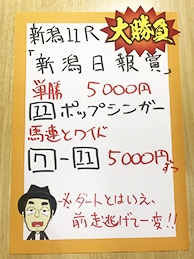 大勝負
新潟11R
「新潟日報賞」
単勝 5000円
11 ポップシンガー
馬連とワイド
7-11 5000円ずつ
※ダートとはいえ、
前走逃げて一変!!